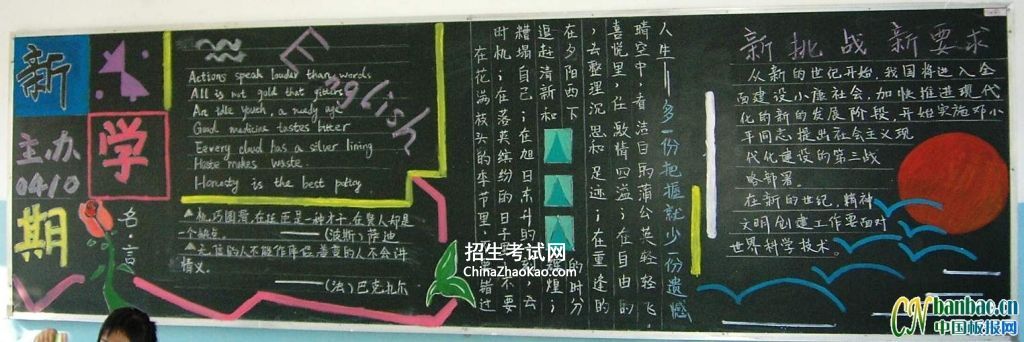 新
学
期
主办
0410
English
Actions speak louder than words
All is not gold that gitters
An idle youth, a needy age
Good medicine tastes bitter
Eevery cloud has a silver lining
Haste makes waste.
Honesty is the best policy
名言
一个缺点。
——(波斯)萨迪
情义。
——(法)巴克扎尔
人生——多一份把握就少一份遗憾
晴空中,看洁白的蒲公英轻轻飞,
喜悦里,任激情四溢;在自由的
,去整理沉思和足迹;在重逢的
在夕阳西下的时分
追赶清新和辉煌;
糟塌自己;在旭日东升的
时机;在落英缤纷的日子里不要
在花满枝头的季节里,不要错过
新挑战新要求
从新的世纪开始,我国将进入全
面建设小康社会,加快推进现代
化的新的发展阶段,开始实施邓小
平同志提出社会主义现
代化建设的第三战
略部署。
在新的世纪,精神
文明创建工作要面对
世界科学技术。
招生考试网
ChinaZhaoKao.com
CNbanbao.cn
中国板报网